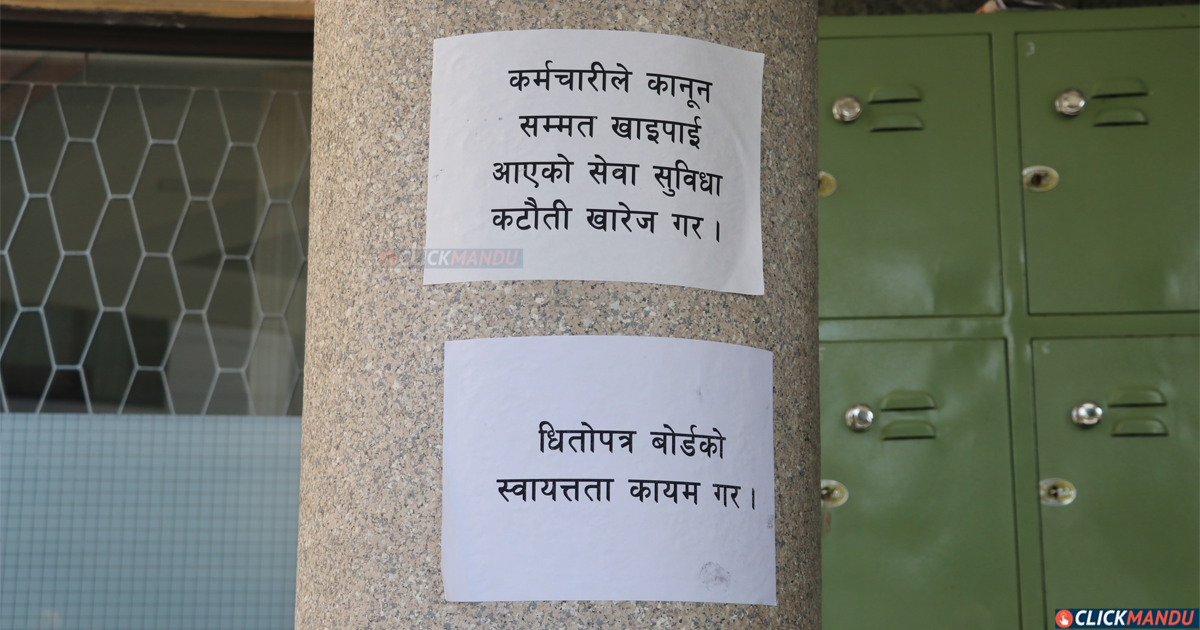 कर्मचारीले कानून
सम्मत खाइपाई
आएको सेवा सुविधा
कटौती खारेज गर ।
CLICKMANDU
धितोपत्र बोर्डको
स्वायत्तता कायम गर ।
3
CLICKMANDU